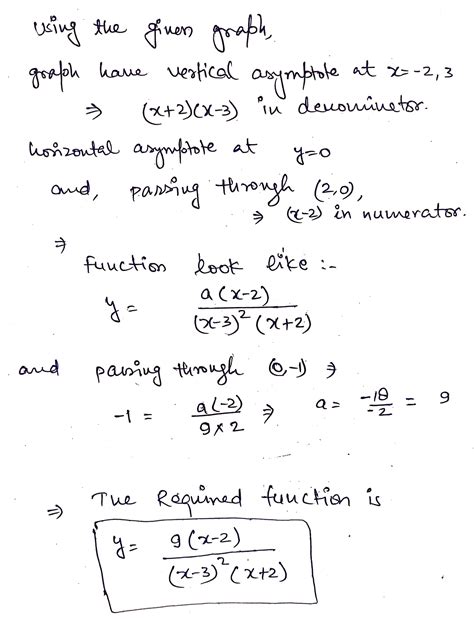 using the given graph,
graph have vertical asymptote at x=-2,3
⇒ (x+2)(x-3) in denominator.
horizontal asymptote at y=0
and, passing through (2,0),
⇒ (x-2) in numerator.
⇒
function look like :-
y = a(x-2) / (x-3)² (x+2)
and passing through (0,-1) ⇒
-1 = a(-2) / 9×2 ⇒ a = -18/-2 = 9
⇒ The Required function is
y = 9(x-2) / (x-3)² (x+2)